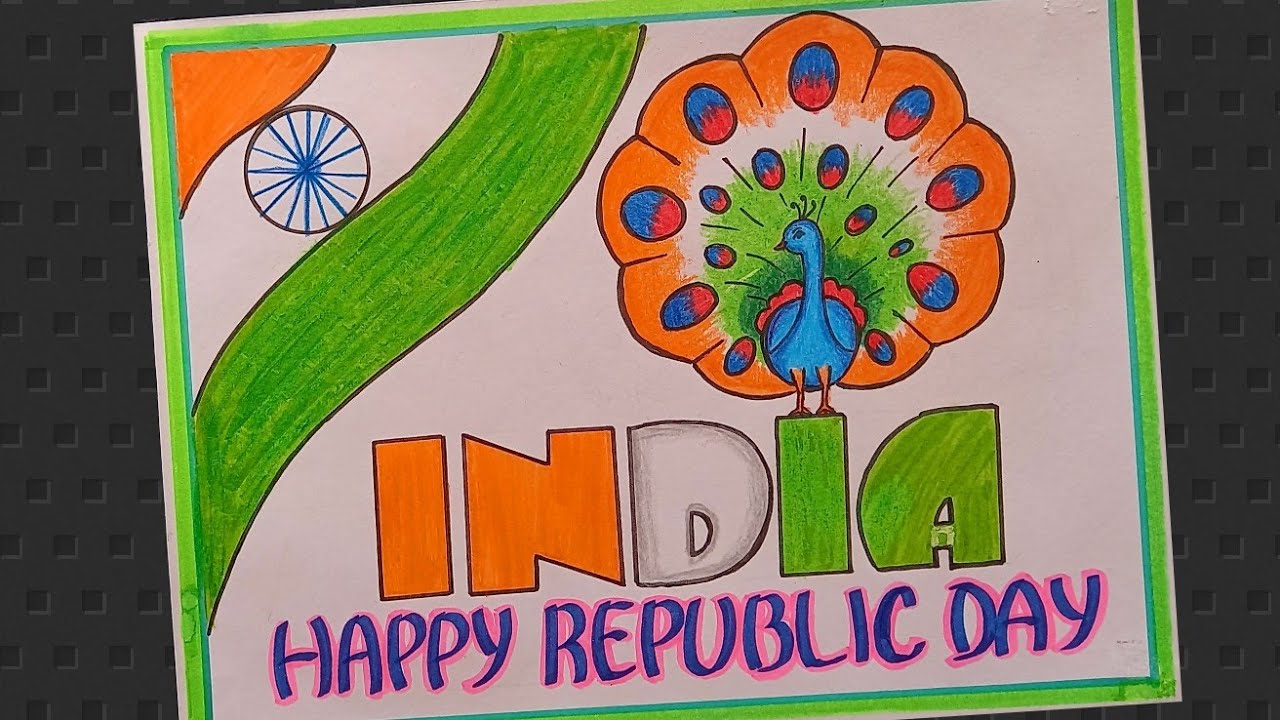 INDIA
HAPPY REPUBLIC DAY